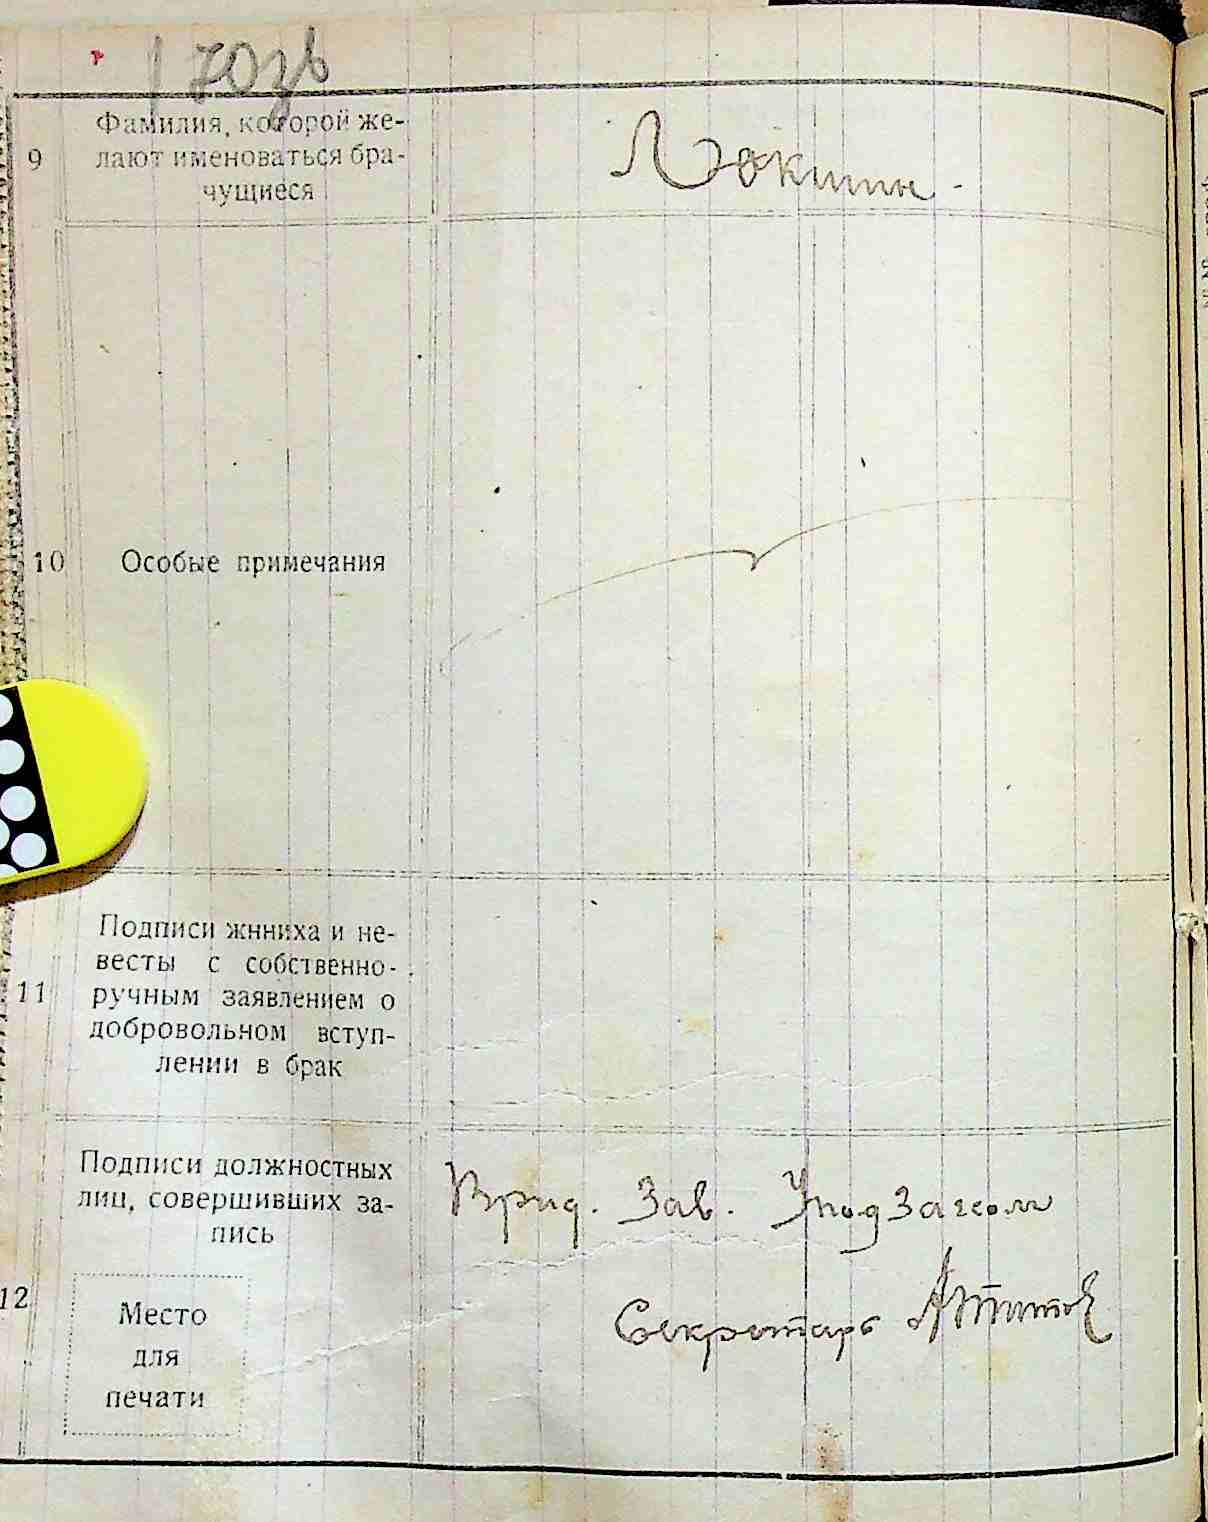 170зв
9
Фамилия, которой же-
лают именоваться бра-
чущиеся
Локшин.
10
Особые примечания
11
Подписи жнниха и не-
весты с собственно-
ручным заявлением о
добровольном вступ-
лении в брак
12
Подписи должностных
лиц, совершивших за-
пись
Врид. Зав. Уподзагсом
Секретарь
Место
для
печати